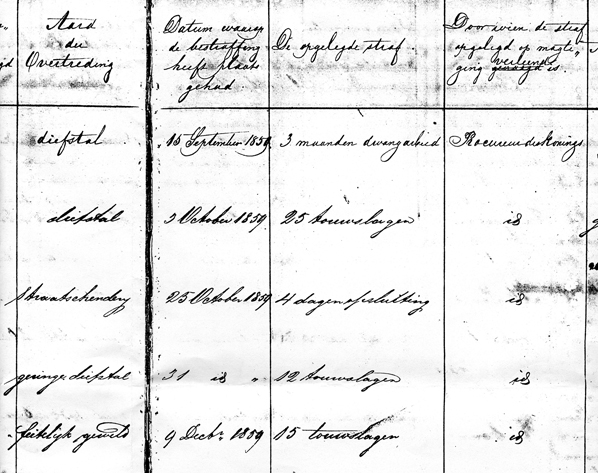 Aard
der
Overtreding
Datum waarop
de bestraffing
heeft plaats
gehad.
De opgelegde straf.
Door wien de straf
opgelegd op magti„
verleend
ging gevraagd is.
diefstal 15 September 1859. 3 maanden dwangarbeid Procureur des Konings
diefstal 3 October 1859. 25 touwslagen id
Straatschendery 25 October 1859 4 dagen opsluiting id
geringe diefstal 31 id „ 12 touwslagen id
feitelijk geweld 9 Decbr. 1859 15 touwslagen id